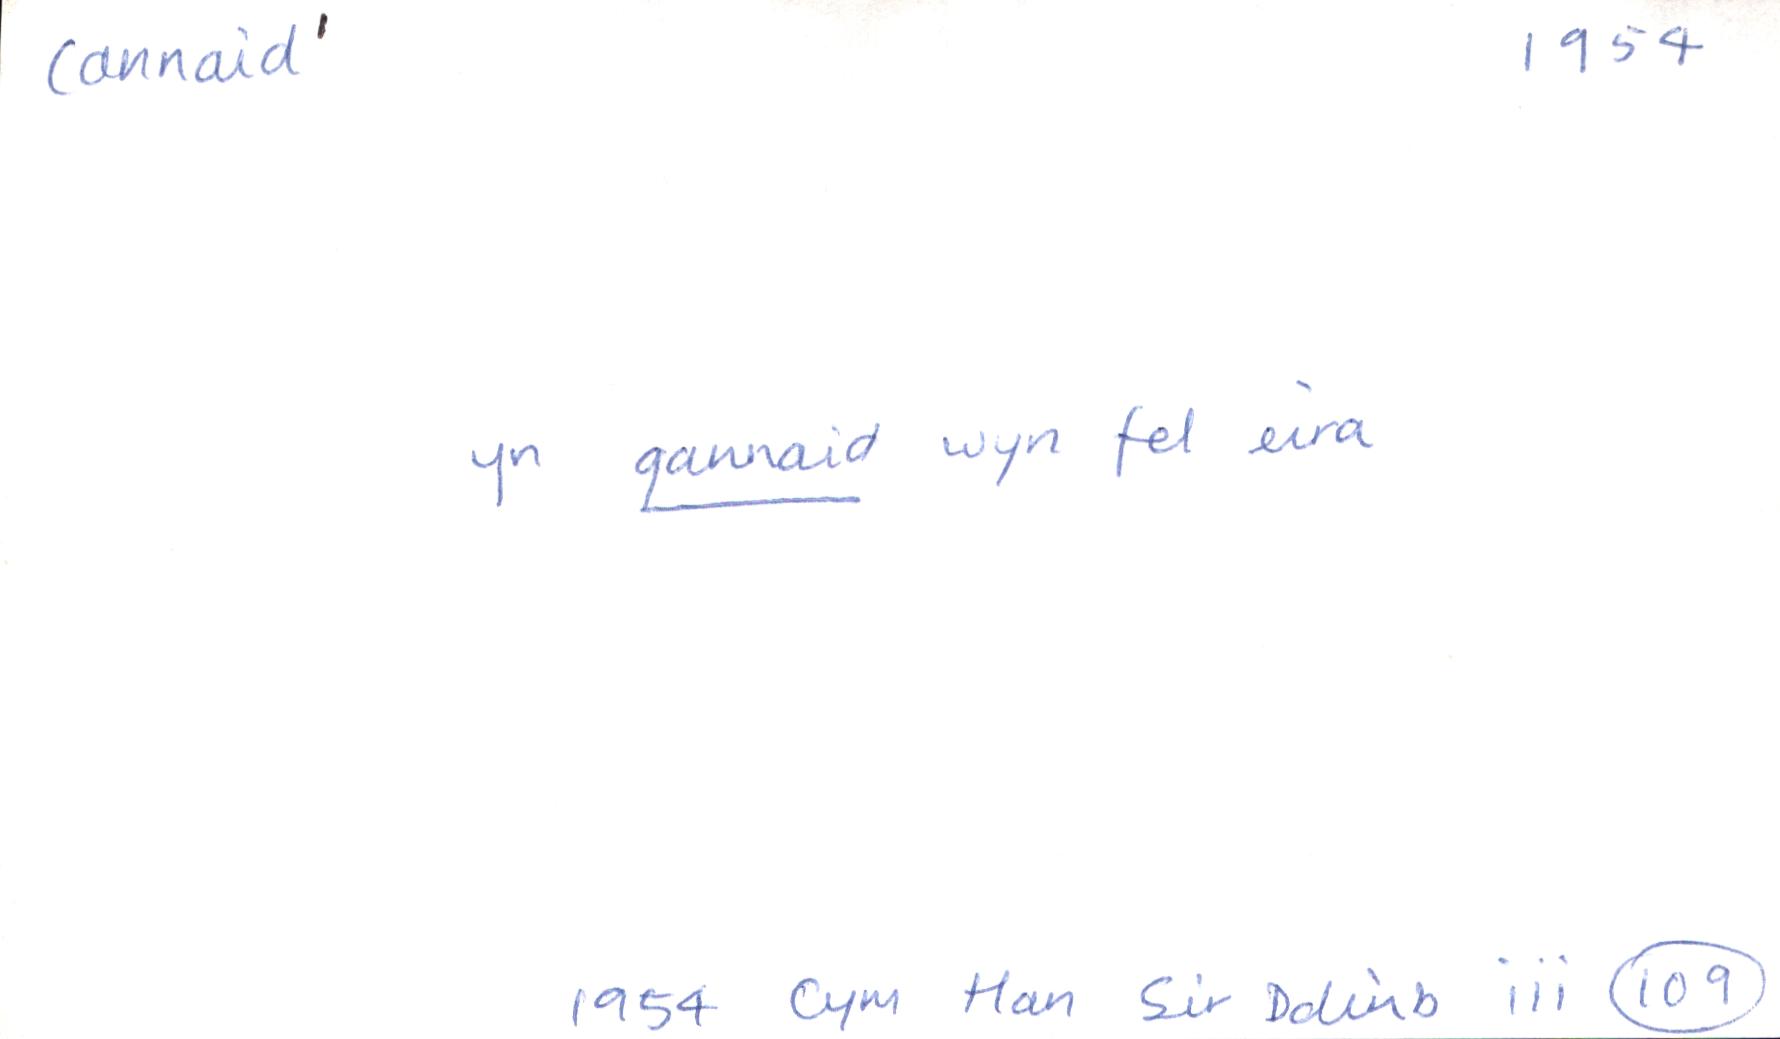 cannaid' 1954
yn gannaid wyn fel eira
1954 Cym Han Sir Ddinb iii 109